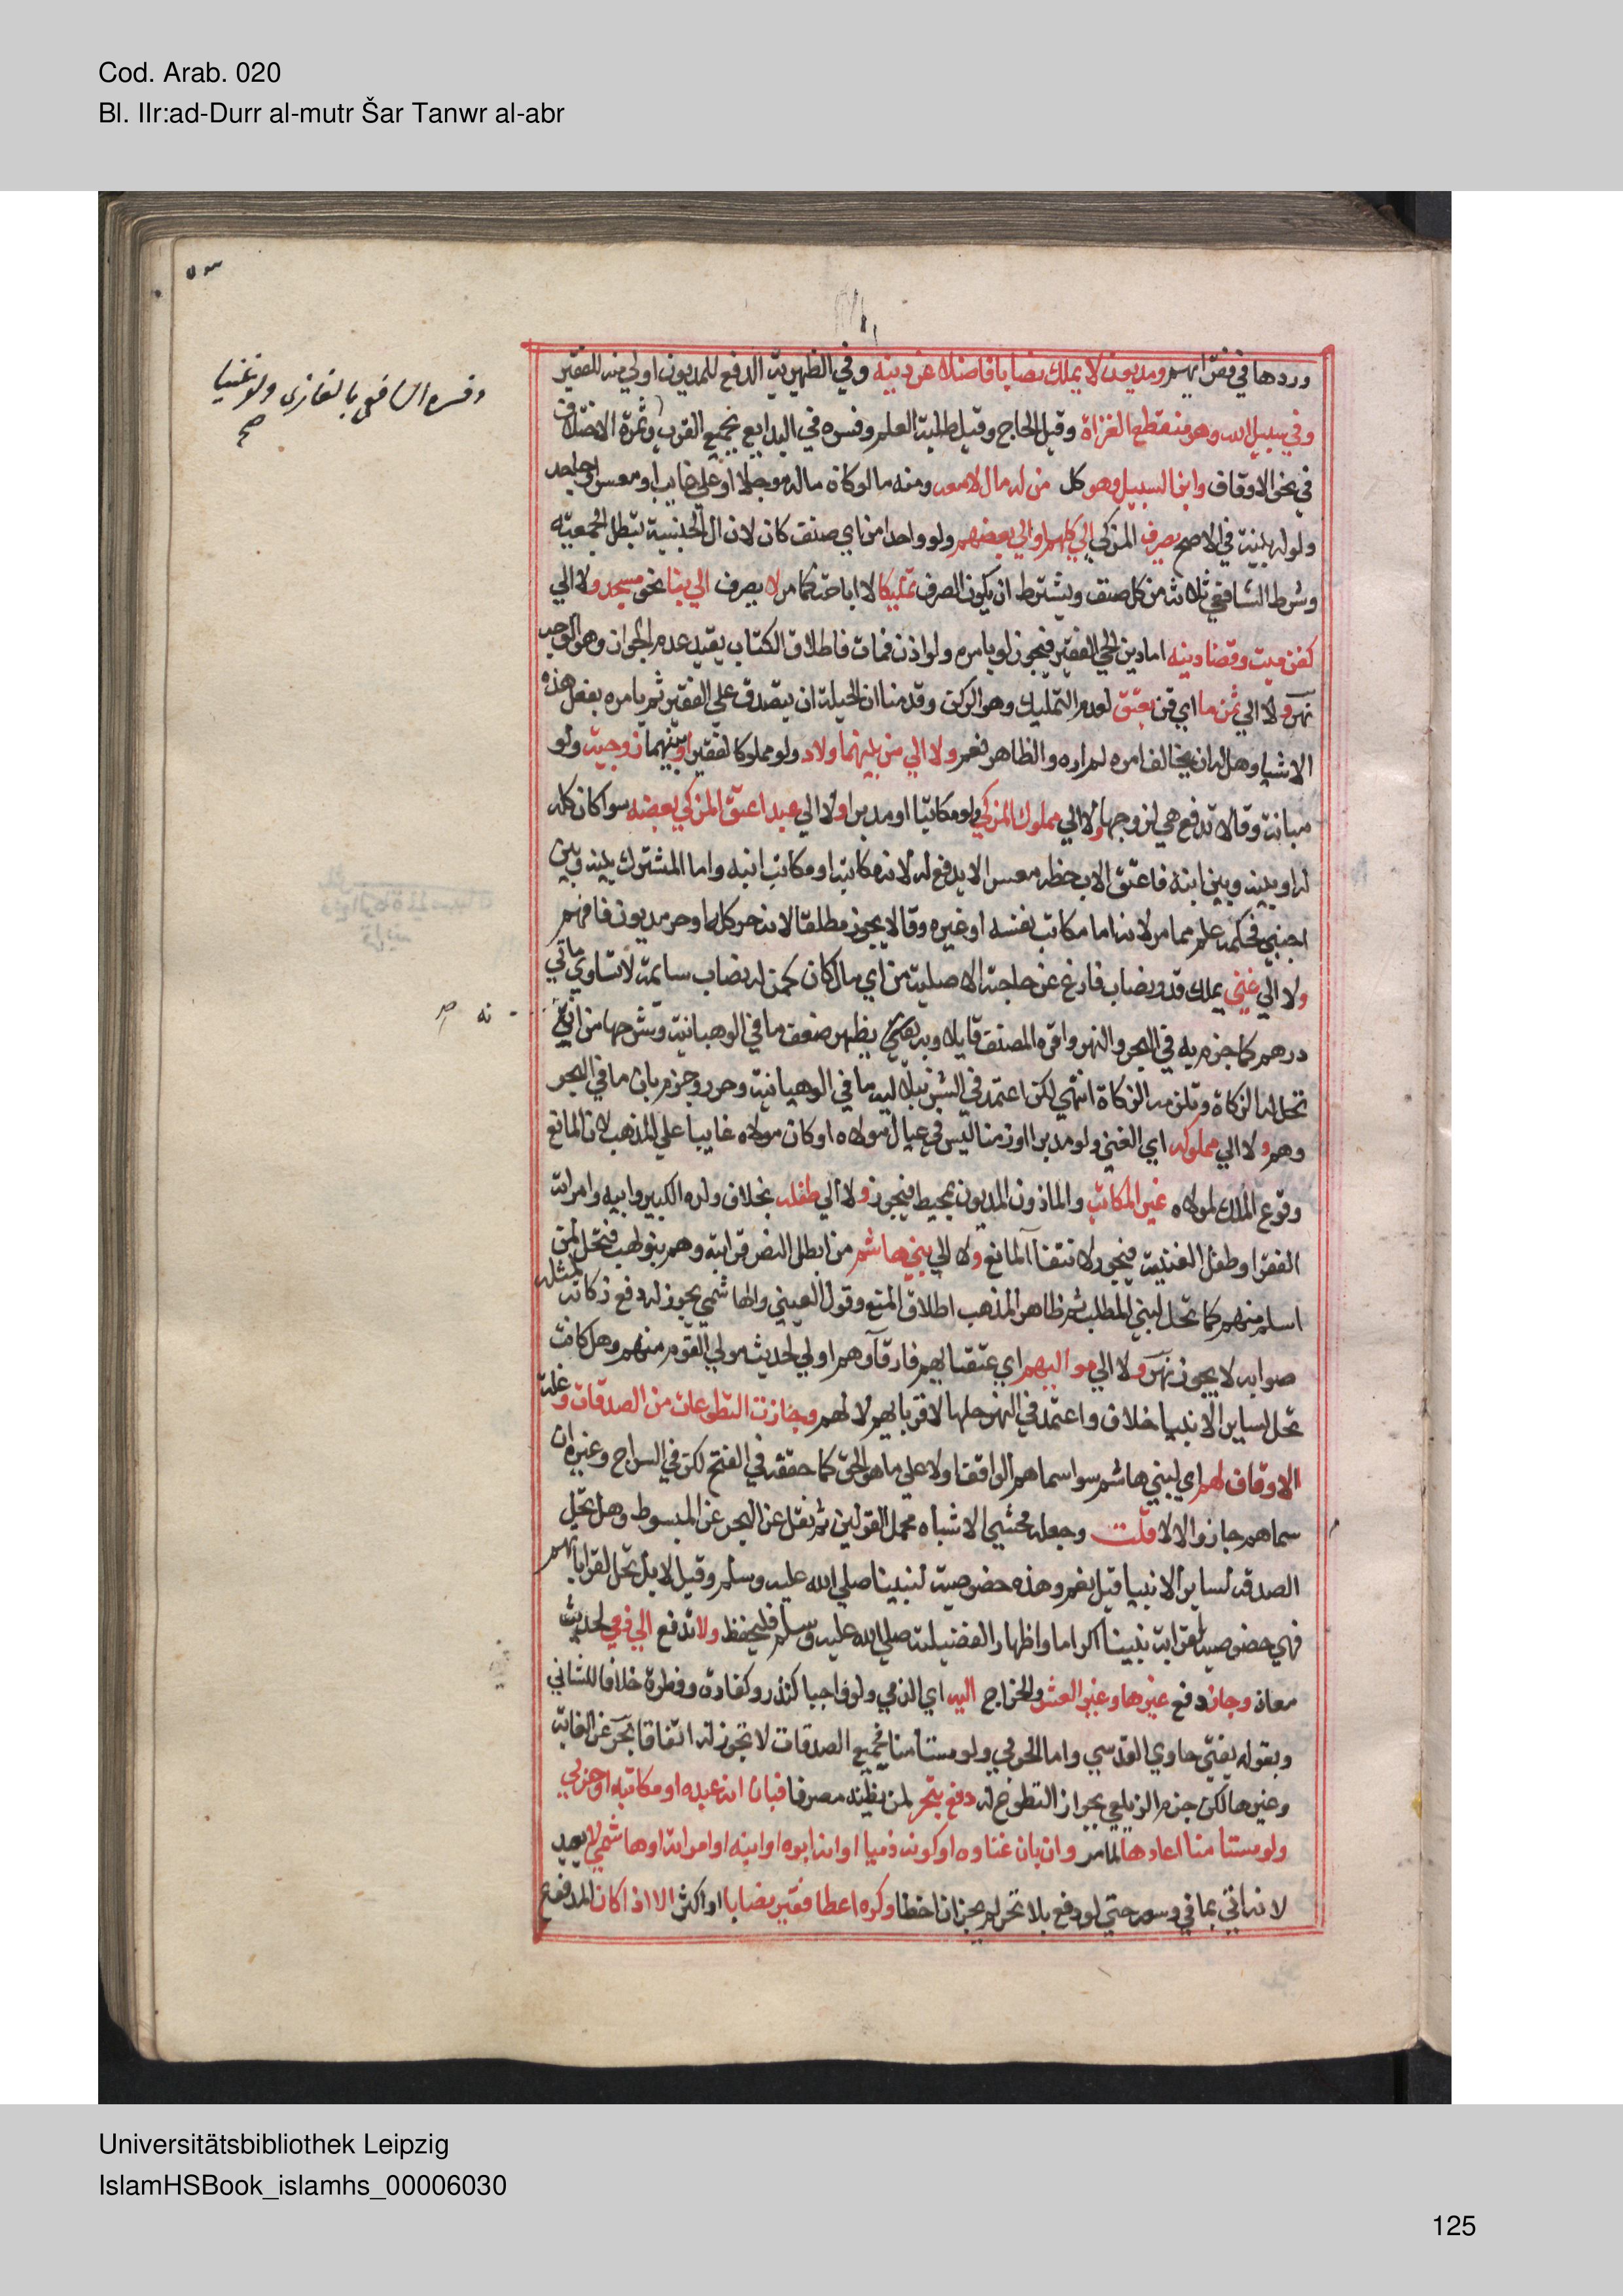 Cod. Arab. 020
Bl. IIr:ad-Durr al-mutr Šar Tanwr al-abr
وردها في فقرائهم ومديون لا يملك نصابا فاضلا عن دينه وفي الظهيرية الدفع للمديون اولي منه للفقير
وفي سبيل الله وهو منقطع الغزاة وقيل الحاج وقيل طلبة العلم وفسره في البدايع بجميع القرب وثمرة الاختلاف
وفسره الشافعي بالغازي ولو غنيا
صح
في نحو الاوقاف وابن السبيل وهو كل من له مال لا معه ومنه ما لو كان ماله موجلا او علي غايب او معسر او جاحد
ولو له بينة في الاصح يصرف المزكي الي كلهم او الي بعضهم ولو واحدا من اي صنف كان لان ال الجنسية تبطل الجمعية
وشرط الشافعي ثلاثة من كل صنف ويشترط ان يكون الصرف تمليكا لا اباحة كما مر لا يصرف الي بنا نحو مسجد ولا الي
كفن ميت وقضا دينه اما دين الحي الفقير فيجوز لو بامره ولو اذن فمات فاطلاق الكتاب يفيد عدم الجواز وهو الوجه
نهر ولا الي ثمن ما اي قن يعتق لعدم التمليك وهو الركن وقدمنا ان الحيلة ان يتصدق علي الفقير ثم يامره بفعل هذه
الاشيا وهل له ان يخالف امره لم اره والظاهر نعم ولا الي من بينهما ولاد ولو مملوكا لفقير او بينهما زوجية ولو
مبانة وقالا تدفع هي لزوجها ولا الي مملوك المزكي ولو مكاتبا او مدبرا ولا الي عبد اعتق المزكي بعضه سوا كان كله
له او بينه وبين ابنه فاعتق الاب حظه معسرا لا يدفع له لانه مكاتبه او مكاتب ابنه واما المشترك بينه وبين
اجنبي فحكمه علم مما مر لانه اما مكاتب نفسه او غيره وقالا يجوز مطلقا لانه حر كله او حر مديون فافهم
ولا الي غني يملك قدر نصاب فارغ عن حاجته الاصلية من اي مال كان كمن له نصاب سايمة لا تساوي ماتي
درهم كما جزم به في البحر والنهر واقره المصنف قايلا وبه يظهر ضعف ما في الوهبانية وشرحها من انه
تحل له الزكاة وتلزمه الزكاة انتهي لكن اعتمد في الشرنبلالية ما في الوهبانية وحرر وجزم بان ما في البحر
وهم ولا الي مملوكه اي الغني ولو مدبرا او زمنا ليس في عيال مولاه او كان مولاه غايبا علي المذهب لان المانع
وقوع الملك لمولاه غير المكاتب والماذون المديون بمحيط فيجوز ولا الي طفله بخلاف ولده الكبير وابيه وامراته
الفقرا وطفل الغنية فيجوز لانتفا المانع ولا الي بني هاشم من ابطل النص قرابته وهم بنو لهب فتحل لمن
اسلم منهم كما تحل لبني المطلب ثم ظاهر المذهب اطلاق المنع وقول العيني والهاشمي يجوز له دفع زكاته لمثله
صوابه لا يجوز نهر ولا الي مواليهم اي عتقايهم فارقاوهم اولي لحديث مولي القوم منهم وهل كانت
تحل لساير الانبيا خلاف واعتمد في النهر حلها لاقربايهم لا لهم وجازت التطوعات من الصدقات وغلة
الاوقاف لهم اي لبني هاشم سوا سماهم الواقف اولا علي ما هو الحق كما حققه في الفتح لكن في السراج وغيره ان
سماهم جاز والا لا قلت وجعله محشي الاشباه محمل القولين ثم نقل عن البحر عن المبسوط وهل تحل
الصدقة لساير الانبيا قيل نعم وهذه خصوصية لنبينا صلي الله عليه وسلم وقيل لا بل تحل لقرابايهم
فهي خصوصية لقرابة نبينا اكراما واظهارا لفضيلته صلي الله عليه وسلم فليحفظ ولا تدفع الي ذمي لحديث
معاذ وجاز دفع غيرها وغير العشر والخراج اليه اي الذمي ولو واجبا كنذر وكفارة وفطرة خلافا للثاني
وبقوله يفتي حاوي القدسي واما الحربي ولو مستامنا فجميع الصدقات لا تجوز له اتفاقا بحر عن الغاية
وغيرها لكن جزم الزيلعي بجواز التطوع له دفع بتحر لمن يظنه مصرفا فبان انه عبده او مكاتبه او حربي
ولو مستامنا اعادها لما مر وان بان غناوه او كونه ذميا او انه ابوه او ابنه او امراته او هاشمي لا يعيد
لانه اتي بما في وسعه حتي لو دفع بلا تحر لم يجز ان اخطا وكره اعطا فقير نصابا او اكثر الا اذا كان المدفوع
Universitätsbibliothek Leipzig
IslamHSBook_islamhs_00006030
125